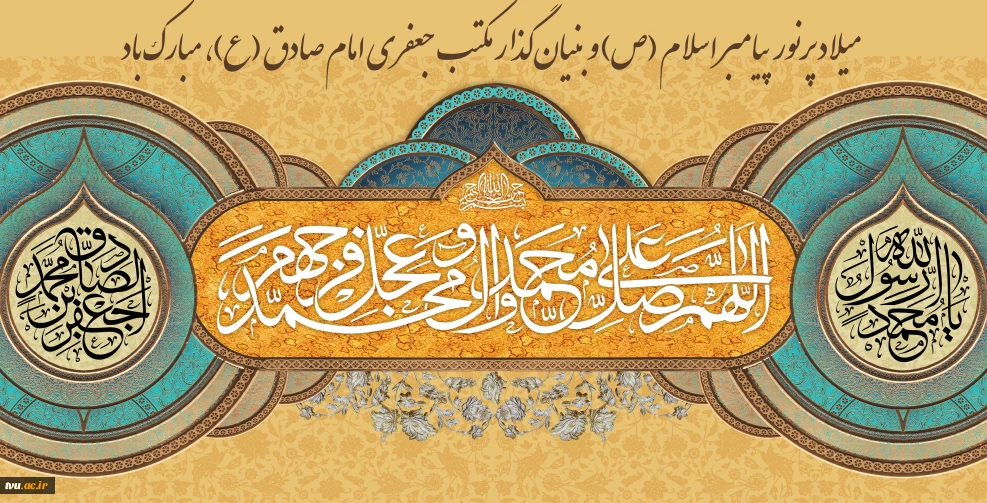 میلاد پر نور پیامبر اسلام (ص) و بنیان گذار مکتب جعفری امام صادق (ع)، مبارک باد
بسم الله الرحمن الرحیم
اللهم صل علی محمد وال محمد وعجل فرجهم
یا محمد رسول الله
جعفر بن محمد الصادق
tvu.ac.ir